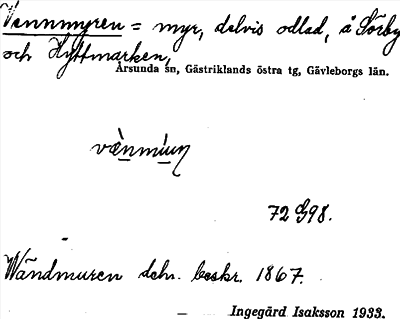 Vennmyren = myr, delvis odlad, å Sörby
och Hyttmarken,
Årsunda sn, Gästriklands östra tg, Gävleborgs län.
væ̀nmi̇un
72 G98.
Wändmuren dchr. beskr. 1867.
Ingegärd Isaksson 1933.